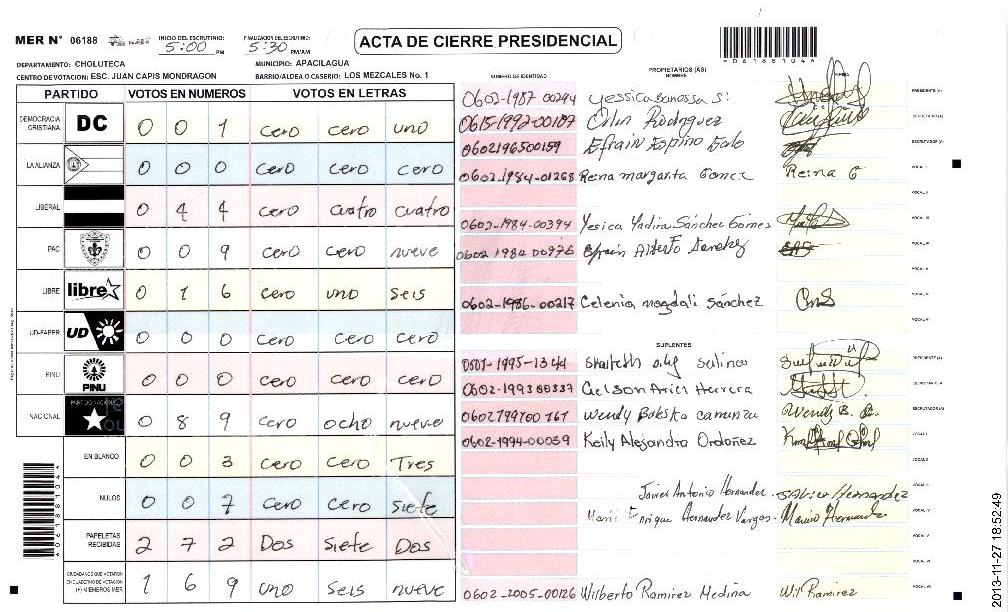 MER Nº 06188 INICIO DEL ESCRUTINIO: 5:00 PM FINALIZACION ESCRUTINIO: 5:30 PM/AM
ACTA DE CIERRE PRESIDENCIAL
*06188104*
DEPARTAMENTO: CHOLUTECA MUNICIPIO: APACILAGUA
CENTRO DE VOTACION: ESC. JUAN CAPIS MONDRAGON BARRIO/ALDEA O CASERIO: LOS MEZCALES No. 1
PARTIDO VOTOS EN NUMEROS VOTOS EN LETRAS
DEMOCRACIA CRISTIANA DC 0 0 1 cero cero uno
LA ALIANZA 0 0 0 cero cero cero
LIBERAL 0 4 4 cero cuatro cuatro
PAC 0 0 9 cero cero nueve
LIBRE libre 0 1 6 cero uno seis
UD-FAPER UD 0 0 0 cero cero cero
PINU PINU 0 0 0 cero cero cero
NACIONAL 0 8 9 cero ocho nueve
EN BLANCO 0 0 3 cero cero Tres
NULOS 0 0 7 cero cero siete
PAPELETAS RECIBIDAS 2 7 2 Dos siete Dos
CIUDADANOS QUE VOTARON EN CUADERNO DE VOTACION (+) MIEMBROS MER 1 6 9 uno seis nueve
*06188104*
PROPIETARIOS (AS)
NUMERO DE IDENTIDAD NOMBRE FIRMA
0602-1987-00294 PRESIDENTE (A)
0615-1992-00107 Rodriguez SECRETARIO (A)
0602196500159 Efrain Espino ESCRUTADOR (A)
0602-1984-01268 Reina margarita Gomez Reina G VOCAL I
VOCAL II
0602-1984-00394 Yesica Yadira Sánchez Gomes VOCAL III
0602 1984 00976 Efrain Alberto Sanchez
0602-1986-00217 Celenia magdali sánchez
SUPLENTES
0501-1995-1344 PRESIDENTE (A)
0602-1993 00337 Gelson Herrera SECRETARIO A
0602 199700 161 Wendy Wendy B. ESCRUTADOR (A)
0602-1994-00039 Keily Alejandra Ordoñez VOCAL I
VOCAL II
Javier Antonio Hernandez Hernandez VOCAL III
Enrique Hernandez Vargas Mario Hernandez VOCAL IV
VOCAL V
VOCAL VI
0602-2005-00126 Wilberto Ramirez Medina Wil Ramirez VOCAL VII
2013-11-27 18:52:49